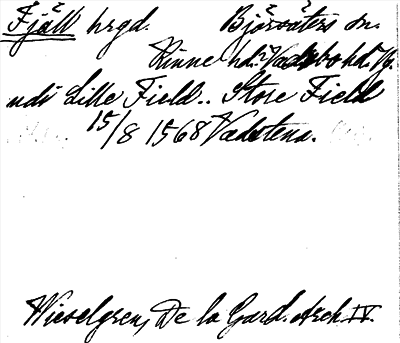 Fjäll hrgd. Björsäters sn.
Kinne hd. Vadsbo hd.
udi Lille Field.. Store Field
15/8 1568 Vadstena.
Wieselgren, De la Gard. Arch IV.